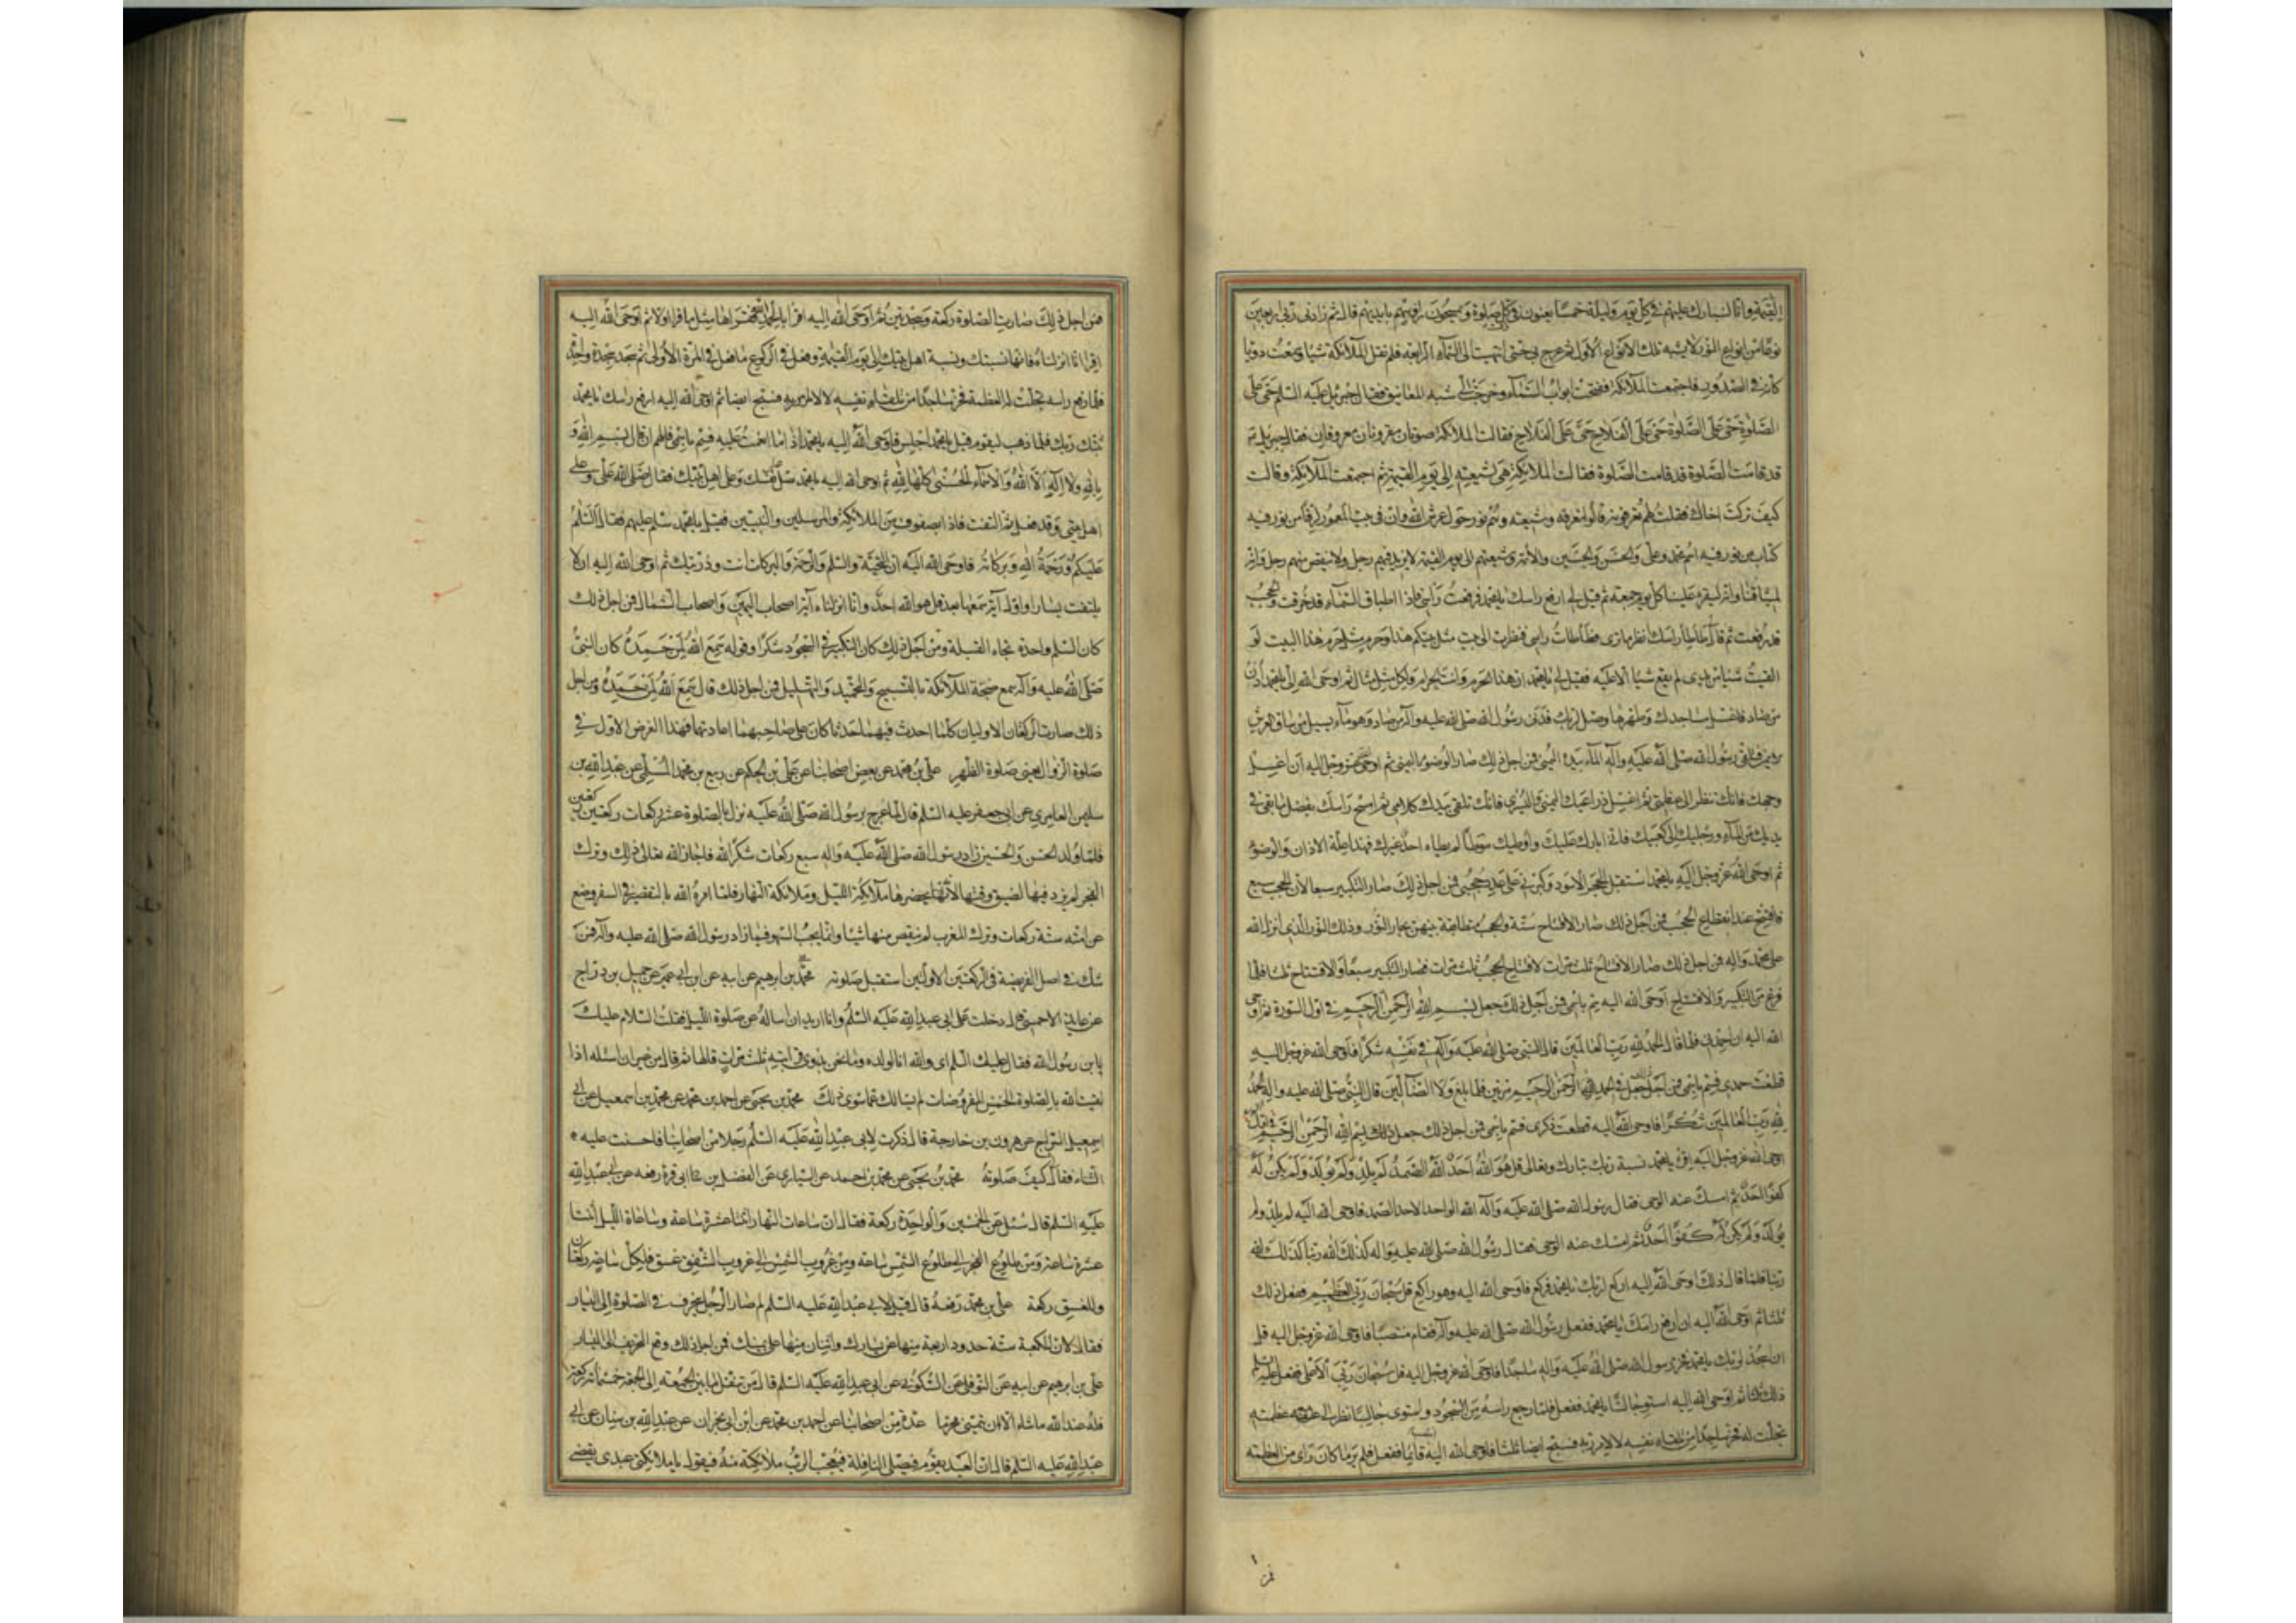 القيمة وانا ابارك عليهم في كل يوم وليلة خمسا يعنون في كل صلوة ويمسحون رؤسهم بايديهم قال ثم زادني ربي اربعين
نوعا من انواع النور لا يشبه تلك الانواع الاول ثم عرج بي حتى انتهيت الى السمآء الرابعة فلم تقل الملآئكة شيئا وسمعت دويا
كانه في الصدور فاجتمعت الملآئكة ففتحت ابواب السمآء وخرجت الي شبه المعانيق فقال جبرئيل عليه السلم حي على
الصلوة حي على الصلوة حي على الفلاح حي على الفلاح فقالت الملآئكة صوتان مقرونان معروفان فقال جبرئيل عم
قد قامت الصلوة قد قامت الصلوة فقالت الملائكة هي لشيعته الى يوم القيمة ثم اجتمعت الملآئكة وقالت
كيف تركت اخاك فقلت لهم تعرفونه قالوا نعرفه وشيعته وهم نور حول عرش الله وان في البيت المعمور لرقا من نور فيه
كتاب من نور فيه اسم محمد وعلي والحسن والحسين والائمة وشيعتهم الى يوم القيمة لا يزيد فيهم رجل ولا ينقص منهم رجل وانه
لميثاقنا وانه ليقرء علينا كل يوم جمعة ثم قيل لي ارفع راسك يا محمد فرفعت راسي فاذا اطباق السمآء قد خرقت والحجب
قد رفعت ثم قال لي طاطا راسك انظر ما ترى فطاطات راسي فنظرت الى بيت مثل بيتكم هذا وحرم مثل حرم هذا البيت لو
القيت شيئا من يدي لم يقع شيئا الا عليه فقيل لي يا محمد ان هذا الحرم وانت الحرام ولكل مثل مثال ثم اوحى الله الي يا محمد ادن
من صاد فاغسل مساجدك وطهرها وصل لربك فدنى رسول الله صلى الله عليه وآله من صاد وهو مآء يسيل من ساق العرش
الايمن فتلقى رسول الله صلى الله عليه وآله المآء بيده اليمنى فمن اجل ذلك صار الوضوء باليمنى ثم اوحى الله عز وجل اليه ان اغسل
وجهك فانك تنظر الى عظمتي ثم اغسل ذراعيك اليمنى واليسرى فانك تلقى بيدك كلامي ثم امسح راسك بفضل ما بقي في
يديك من المآء ورجليك الى كعبيك فاني ابارك عليك واوطيك موطئا لم يطاه احد غيرك فهذا علة الاذان والوضوء
ثم اوحى الله عز وجل اليه يا محمد استقبل الحجر الاسود وكبرني على عدد حجبي فمن اجل ذلك صار التكبير سبعا لان الحجب سبع
فافتتح عند انقطاع الحجب فمن اجل ذلك صار الافتتاح سنة والحجب متطابقة بينهن بحار النور وذلك النور الذي انزله الله
على محمد وآله فمن اجل ذلك صار الافتتاح ثلث مرات لافتتاح الحجب ثلث مرات فصار التكبير سبعا والافتتاح ثلثا فلما
فرغ من التكبير والافتتاح اوحى الله اليه سم باسمي فمن اجل ذلك جعل بسم الله الرحمن الرحيم في اول السورة ثم اوحى
الله اليه ان احمدني فلما قال الحمد لله رب العالمين قال النبي صلى الله عليه وآله في نفسه شكرا فاوحى الله عز وجل اليه
قطعت حمدي فسم باسمي فمن اجل ذلك جعل في الحمد الرحمن الرحيم مرتين فلما بلغ ولا الضآلين قال النبي صلى الله عليه وآله الحمد
لله رب العالمين شكرا فاوحى الله اليه قطعت ذكري فسم باسمي فمن اجل ذلك جعل بسم الله الرحمن الرحيم
اوحى الله عز وجل اليه اقرء يا محمد نسبة ربك تبارك وتعالى قل هو الله احد الله الصمد لم يلد ولم يولد ولم يكن له
كفوا احد ثم امسك عنه الوحي فقال رسول الله صلى الله عليه وآله الله الواحد الاحد الصمد فاوحى الله اليه لم يلد ولم
يولد ولم يكن له كفوا احد ثم امسك عنه الوحي فقال رسول الله صلى الله عليه وآله كذلك الله ربنا كذلك الله
ربنا فلما قال ذلك اوحى الله اليه اركع لربك يا محمد فركع فاوحى الله اليه وهو راكع قل سبحان ربي العظيم ففعل ذلك
ثلثا ثم اوحى الله اليه ان ارفع راسك يا محمد ففعل رسول الله صلى الله عليه وآله فقام منتصبا فاوحى الله عز وجل اليه
ان اسجد لربك يا محمد فخر رسول الله صلى الله عليه وآله ساجدا فاوحى الله عز وجل اليه قل سبحان ربي الاعلى ففعل
ذلك ثلثا ثم اوحى الله اليه استو جالسا يا محمد ففعل فلما رفع راسه من السجود واستوى جالسا نظر الى عظمته
تجلت له فخر ساجدا من تلقاء نفسه لا لامر ربه فسبح ايضا ثلثا فاوحى الله اليه قائما ففعل فلم ير ما كان راى من العظمة
فمن اجل ذلك صارت الصلوة ركعة وسجدتين ثم اوحى الله اليه اقرا بالحمد فقراها مثل ما قرا اولا ثم اوحى الله اليه
اقرا انا انزلناه فانها نسبتك ونسبة اهل بيتك الى يوم القيمة وفعل في الركوع ما فعل في المرة الاولى ثم سجد سجدة واحدة
فلما رفع راسه تجلت له العظمة فخر ساجدا من تلقاء نفسه لا لامر ربه فسبح ايضا ثم اوحى الله اليه ارفع راسك يا محمد
ثبتك ربك فلما ذهب ليقوم قيل يا محمد اجلس فاوحى الله اليه يا محمد اذا ما انعمت عليه فسم باسمي فالهم ان قال بسم الله و
بالله ولا اله الا الله والاسمآء الحسنى كلها لله ثم اوحى الله اليه يا محمد صل على نفسك وعلى اهل بيتك فقال صلى الله علي وعلى
اهل بيتي وقد فعل ثم التفت فاذا بصفوف من الملائكة والمرسلين والنبيين فقيل يا محمد سلم عليهم فقال السلم
عليكم ورحمة الله وبركاته فاوحى الله اليه ان التحية والسلم والرحمة والبركات انت وذريتك ثم اوحى الله اليه ان لا
يلتفت يسارا واول آية سمعها بعد قل هو الله احد وانا انزلناه آية اصحاب اليمين واصحاب الشمال فمن اجل ذلك
كان السلم واحدة تجاه القبلة ومن اجل ذلك كان التكبير في السجود شكرا وقوله سمع الله لمن حمده لان النبي
صلى الله عليه وآله سمع ضجة الملآئكة بالتسبيح والتحميد والتهليل فمن اجل ذلك قال سمع الله لمن حمده ومن اجل
ذلك صارت الركعتان الاوليان كلما احدث فيهما حدثا كان على صاحبهما اعادتهما فهذا الفرض الاول في
صلوة الزوال يعني صلوة الظهر علي بن محمد عن بعض اصحابنا عن علي بن الحكم عن ربيع بن محمد المسلي عن عبد الله بن
سليمن العامري عن ابي جعفر عليه السلم قال لما عرج برسول الله صلى الله عليه نزل بالصلوة عشر ركعات ركعتين ركعتين
فلما ولد الحسن والحسين زاد رسول الله صلى الله عليه وآله سبع ركعات شكرا لله فاجاز الله تعالى ذلك وترك
الفجر لم يزد فيها لضيق وقتها لانها يحضرها ملآئكة الليل وملائكة النهار فلما امره الله بالتقصير في السفر وضع
عن امته ستة ركعات وترك المغرب لم ينقص منها شيئا وانما يجب السهو فيما زاد رسول الله صلى الله عليه وآله فمن
شك في اصل الفريضة في الركعتين الاولين استقبل صلوته محمد بن ابرهيم عن ابيه عن ابن ابي عمير عن جميل بن دراج
عن عايذ الاحمسي قال دخلت على ابي عبد الله عليه السلم وانا اريد ان اساله عن صلوة الليل فقلت السلام عليك
يا بن رسول الله فقال عليك السلم اي والله انا لولده وما نحن بذوي قرابته ثلث مرات قالها ثم قال من غير ان اسئله اذا
لقيت الله بالصلوة الخمس المفروضات لم يسالك عما سوى ذلك محمد بن يحيى عن احمد بن محمد عن محمد بن اسمعيل عن ابي
اسمعيل السراج عن هرون بن خارجة قال ذكرت لابي عبد الله عليه السلم رجلا من اصحابنا فاحسنت عليه
الثناء فقال كيف صلوته محمد بن يحيى عن محمد بن احمد عن السياري عن الفضل بن ابي قرة رفعه عن ابي عبد الله
عليه السلم قال سئل عن الخمسين والواحدة ركعة فقال ان ساعات النهار اثنتا عشرة ساعة وساعات الليل اثنتا
عشرة ساعة ومن طلوع الفجر الى طلوع الشمس ساعة ومن غروب الشمس الى غروب الشفق غسق فلكل ساعة ركعتان
وللغسق ركعة علي بن محمد رفعه قال قيل لابي عبد الله عليه السلم لم صار الرجل ينحرف في الصلوة الى اليسار
فقال لان للكعبة ستة حدود اربعة منها عن يسارك واثنان منها على يمينك فمن اجل ذلك وقع التحريف الى اليسار
علي بن ابرهيم عن ابيه عن النوفلي عن السكوني عن ابي عبد الله عليه السلم قال من تنفل ما بين الجمعة الى الجمعة خمسمائة ركعة
فله عند الله ما شاء الا ان يتمنى محرما عدة من اصحابنا عن احمد بن محمد عن ابن ابي نجران عن عبد الله بن سنان عن ابي
عبد الله عليه السلم قال ان العبد يقوم فيصلي النافلة فيعجب الرب ملائكته منه فيقول يا ملائكتي عبدي يقضي